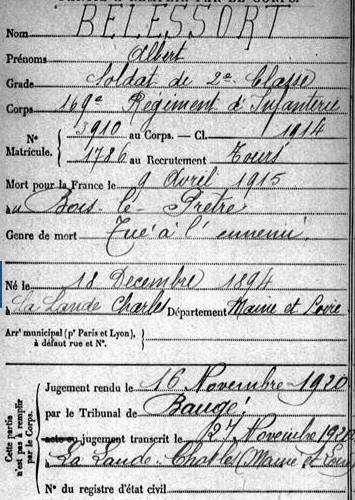 PARTIE À REMPLIR PAR LE CORPS.
Nom BELESSORT
Prénoms Albert
Grade Soldat de 2e Classe
Corps 169e Régiment d'Infanterie
N° Matricule. { 3910 au Corps. — Cl. 1914
1786 au Recrutement Tours
Mort pour la France le 9 Avril 1915
à Bois-le-Prêtre
Genre de mort Tué à l'ennemi
Né le 18 Décembre 1894
à La Lande Charles Département Maine et Loire
Arrt municipal (pr Paris et Lyon),
à défaut rue et N°.
Cette partie n'est pas à remplir par le Corps.
Jugement rendu le 16 Novembre 1920
par le Tribunal de Baugé
acte ou jugement transcrit le 27 Novembre 1920
à La Lande-Chasles (Maine et Loire)
N° du registre d'état civil